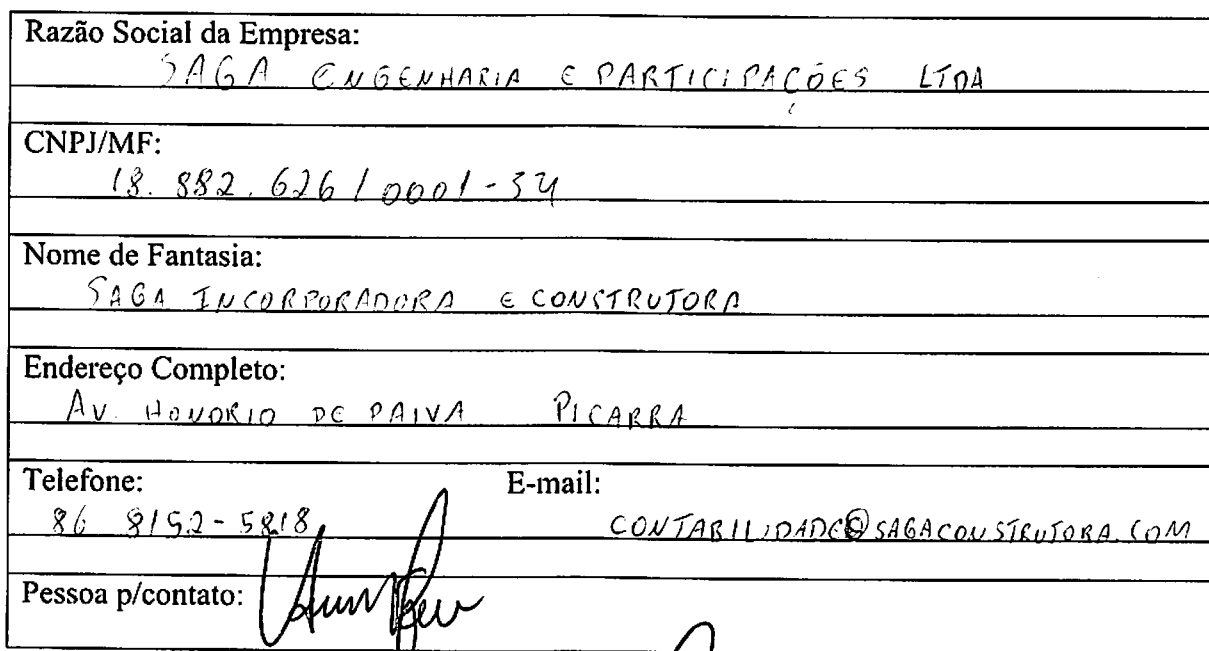 Razão Social da Empresa:
SAGA ENGENHARIA E PARTICIPAÇÕES LTDA
CNPJ/MF:
18.882.626/0001-34
Nome de Fantasia:
SAGA INCORPORADORA E CONSTRUTORA
Endereço Completo:
AV. HONORIO DE PAIVA PICARRA
Telefone: E-mail:
86 8152-5818 CONTABILIDADE@SAGACONSTRUTORA.COM
Pessoa p/contato: